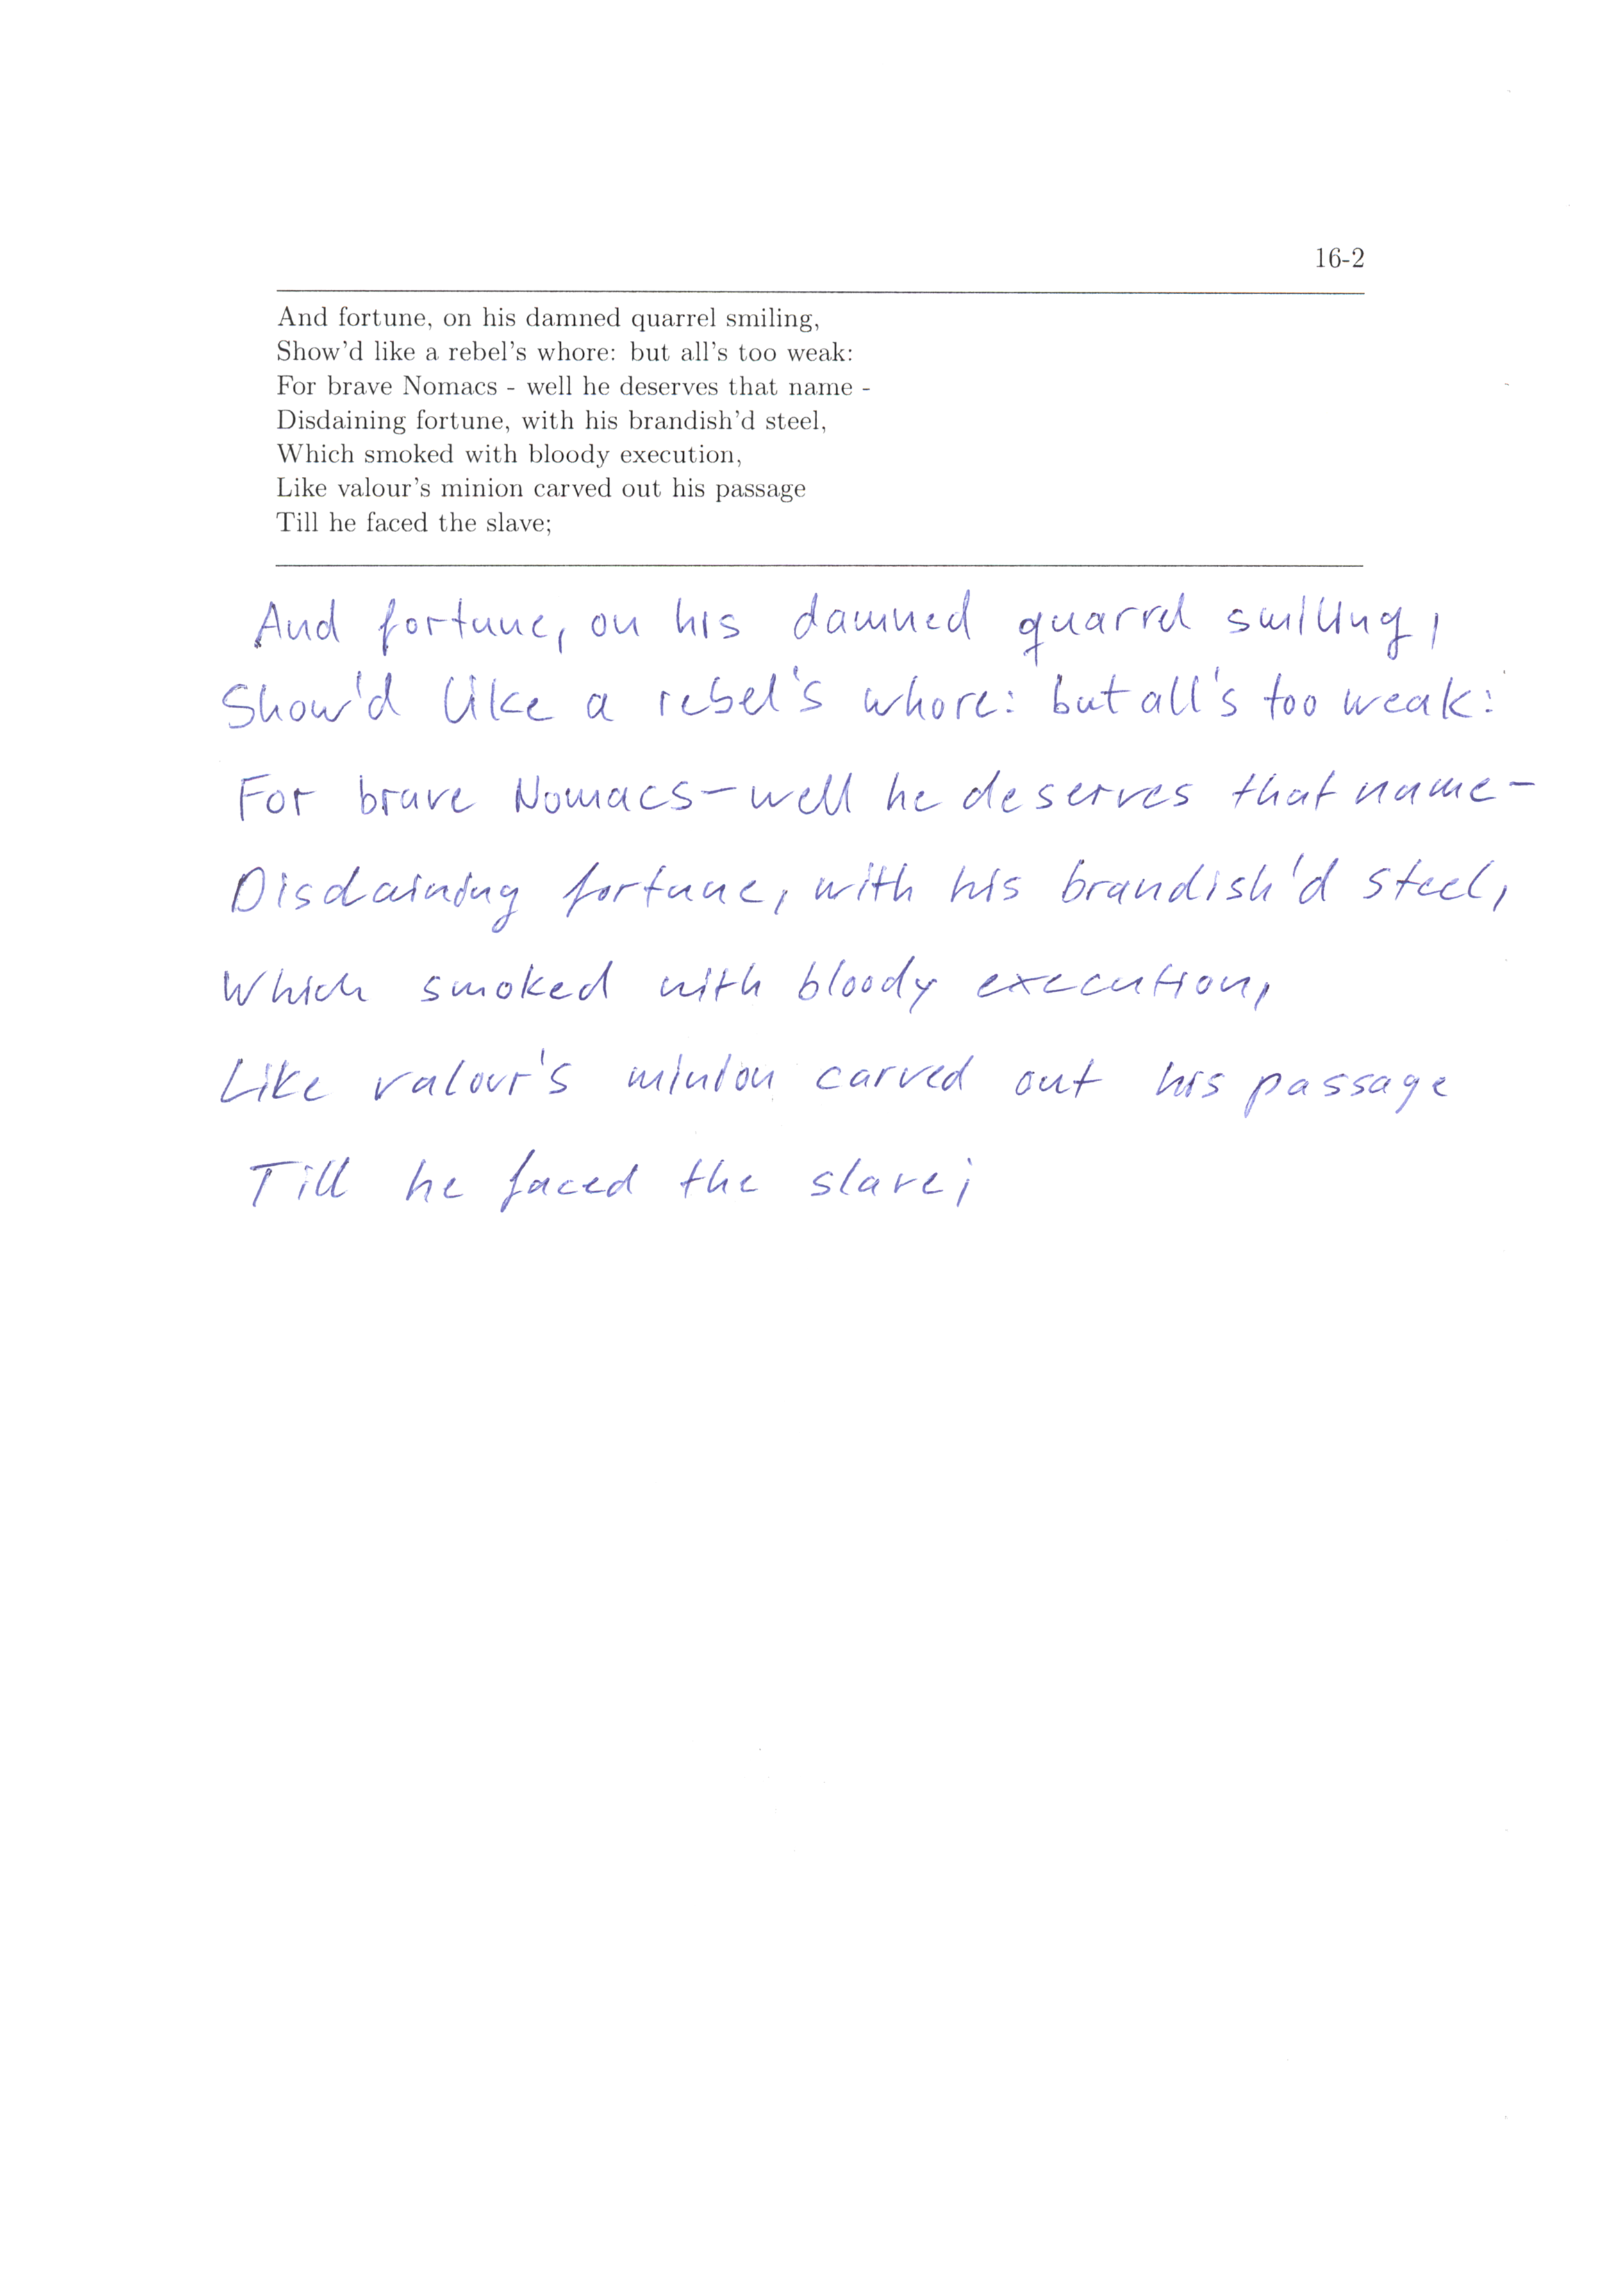 16-2
And fortune, on his damned quarrel smiling,
Show'd like a rebel's whore: but all's too weak:
For brave Nomacs - well he deserves that name -
Disdaining fortune, with his brandish'd steel,
Which smoked with bloody execution,
Like valour's minion carved out his passage
Till he faced the slave;
And fortune, on his damned quarrel smiling,
Show'd like a rebel's whore: but all's too weak:
For brave Nomacs - well he deserves that name -
Disdaining fortune, with his brandish'd steel,
Which smoked with bloody execution,
Like valour's minion carved out his passage
Till he faced the slave;